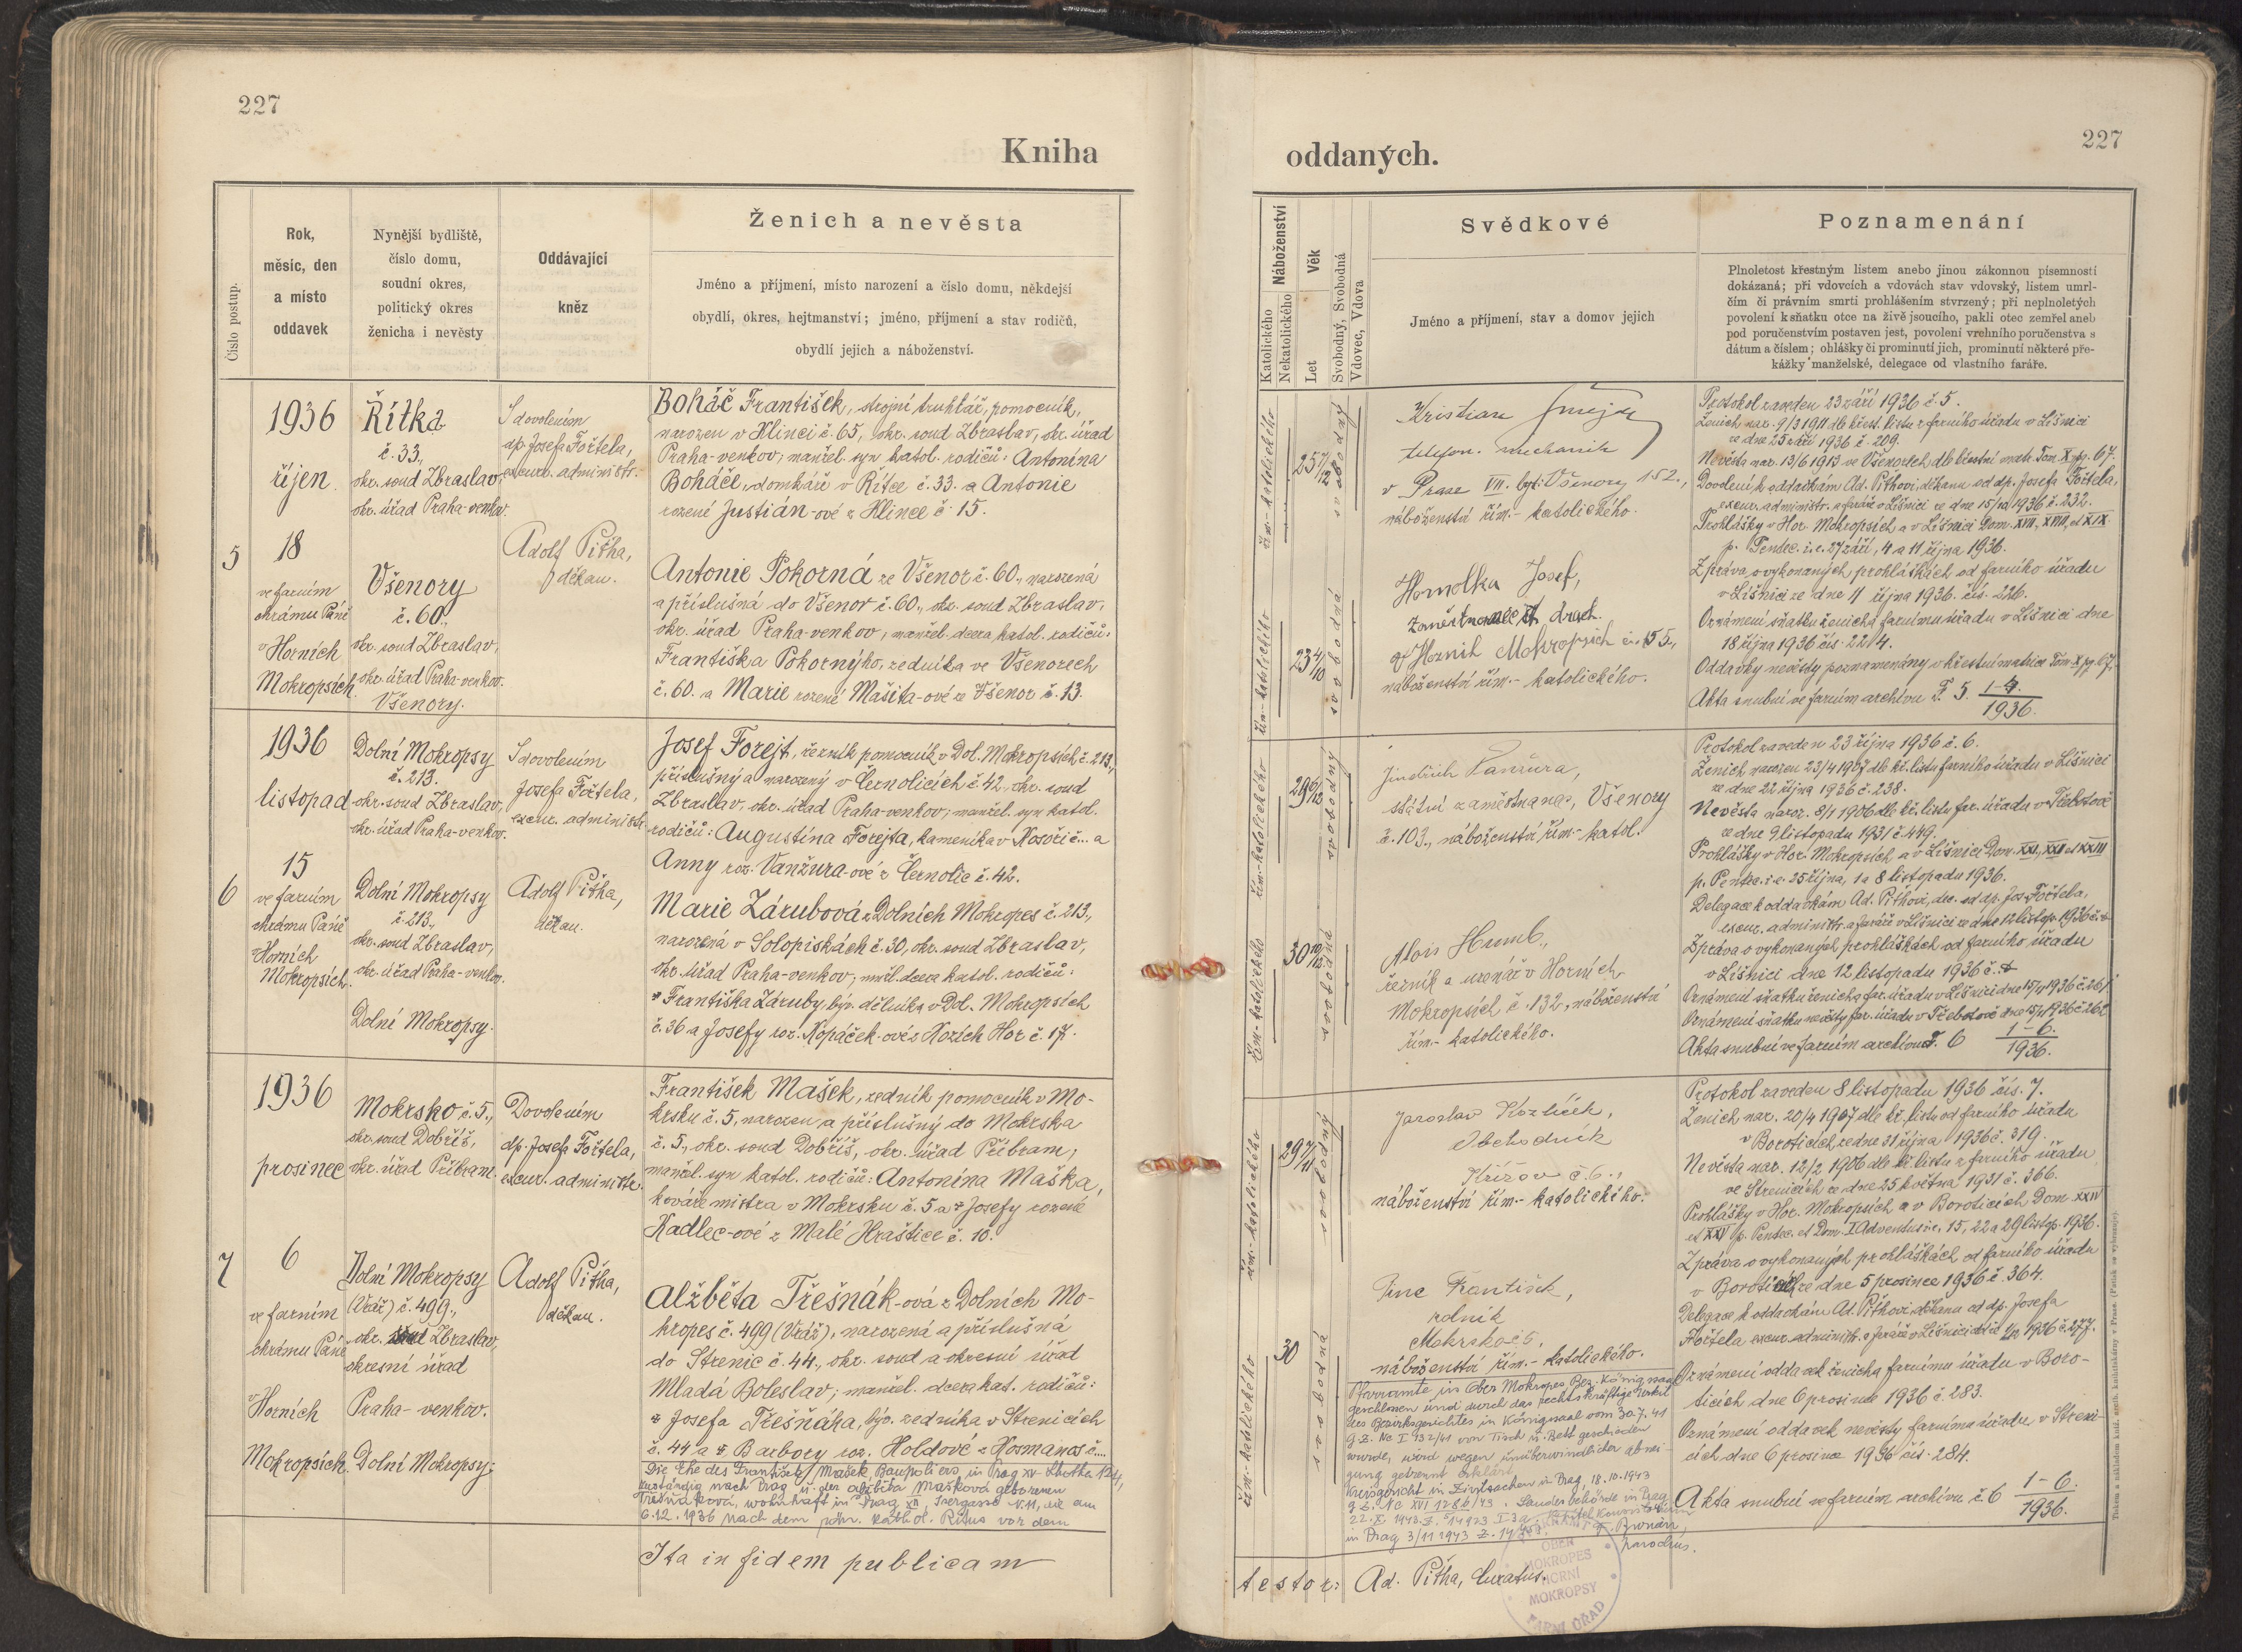 227
Kniha
Číslo postup.
Rok,
měsíc, den
a místo
oddavek
Nynější bydliště,
číslo domu,
soudní okres,
politický okres
ženicha i nevěsty
Oddávající
kněz
Ženich a nevěsta
Jméno a příjmení, místo narození a číslo domu, někdejší
obydlí, okres, hejtmanství; jméno, příjmení a stav rodičů,
obydlí jejich a náboženství.
5
1936
říjen
18
ve farním
chrámu Páně
v Horních
Mokropsích.
Řitka
č. 33.,
okr. soud Zbraslav,
okr. úřad Praha-venkov.
Všenory
č. 60.,
okr. soud Zbraslav,
okr. úřad Praha-venkov.
Všenory.
S dovolením
dp. Josefa Fořtela,
excur. administr.
Adolf Pitha,
děkan.
Boháč František, strojní truhlář, pomocník,
narozen v Klinci č. 65, okr. soud Zbraslav, okr. úřad
Praha-venkov; manžel. syn katol. rodičů: Antonína
Boháče, domkáře v Řitce č. 33. a Antonie
rozené Justián-ové z Klince č. 15.
Antonie Pokorná ze Všenor č. 60., narozená
a příslušná do Všenor č. 60., okr. soud Zbraslav,
okr. úřad Praha-venkov, manžel. dcera katol. rodičů:
Františka Pokorného, zedníka ve Všenorech
č. 60. a Marie rozené Mašita-ové ze Všenor č. 13.
6
1936
listopad
15
ve farním
chrámu Páně
v Horních
Mokropsích.
Dolní Mokropsy
č. 213.
okr. soud Zbraslav,
okr. úřad Praha-venkov.
Dolní Mokropsy
č. 213.,
okr. soud Zbraslav,
okr. úřad Praha-venkov.
Dolní Mokropsy.
S dovolením
Josefa Fořtela,
excur. administr.
Adolf Pitha,
děkan.
Josef Forejt, řezník pomocník v Dol. Mokropsích č. 213.,
příslušný a narozený v Černolicích č. 42., okr. soud
Zbraslav, okr. úřad Praha-venkov; manžel. syn katol.
rodičů: Augustina Forejta, kameníka v Kosoři č... a
Anny roz. Vanžura-ové z Černolic č. 42.
Marie Zárubová z Dolních Mokropes č. 213.,
narozená v Solopiskách č. 30, okr. soud Zbraslav,
okr. úřad Praha-venkov; mnžl. dcera katol. rodičů:
Františka Záruby, býv. dělníka v Dol. Mokropsích
č. 36 a Josefy roz. Kopáček-ové z Kozích Hor č. 17.
7
1936
prosinec
6
ve farním
chrámu Páně
v Horních
Mokropsích.
Mokrsko č. 5.,
okr. soud Dobříš,
okr. úřad Příbram.
Dolní Mokropsy
(Vráž) č. 499.,
okr. soud Zbraslav,
okresní úřad
Praha-venkov.
Dolní Mokropsy.
Dovolením
dp. Josefa Fořtela,
excur. administr.
Adolf Pitha,
děkan.
František Mašek, zedník pomocník v Mo-
krsku č. 5, narozen a příslušný do Mokrska
č. 5., okr. soud Dobříš, okr. úřad Příbram;
manžel. syn katol. rodičů: Antonína Maška,
kováře mistra v Mokrsku č. 5 a Josefy rozené
Kadlec-ové z Malé Hraštice č. 10.
Alžběta Třešňák-ová z Dolních Mo-
kropes č. 499 (Vráž), narozená a příslušná
do Strenic č. 44., okr. soud a okresní úřad
Mladá Boleslav; manžel. dcera kat. rodičů:
Josefa Třešňáka, býv. zedníka v Strenicích
č. 44 a Barbory roz. Holdové z Kosmonos č....
Die Ehe des František Mašek, Baupoliers in Prag XV-Lhotka 124,
zuständig nach Prag u. der Alžběta Mašková geborenen
Třešňáková, wohnhaft in Prag XII Isergasse N. 11, die am
6.12.1936 nach dem röm. kathol. Ritus vor dem
Ita in fidem publicam
227
oddaných.
Náboženství
Katolického
Nekatolického
Věk
Let
Svobodný, Svobodná
Vdovec, Vdova
Svědkové
Jméno a příjmení, stav a domov jejich
Poznamenání
Plnoletost křestným listem anebo jinou zákonnou písemností
dokázaná; při vdovcích a vdovách stav vdovský, listem umrl-
čím či právním smrti prohlášením stvrzený; při neplnoletých
povolení k sňatku otce na živě jsoucího, pakli otec zemřel aneb
pod poručenstvím postaven jest, povolení vrchního poručenstva s
dátum a číslem; ohlášky či prominutí jich, prominutí některé pře-
kážky manželské, delegace od vlastního faráře.
řím.-katolického
25 7/12
svobodný
Kristian
telefon. mechanik
v Praze VII. byt: Všenory 152.,
náboženství řím.-katolického.
řím.-katolického
23 4/10
svobodná
Homolka Josef,
zaměstnanec st. drah.
v Horních Mokropsích č. 155.,
náboženství řím.-katolického.
Protokol zaveden 23 září 1936 č. 5.
Ženich nar. 9/3 1911 dle křest. listu z farního úřadu v Líšnici
ze dne 25 září 1936 č. 209.
Nevěsta nar. 13/6 1913 ve Všenorech dle křestní matr. Tom. X pg. 67.
Dovolení k oddavkám Ad. Pithovi, děkanu od dp. Josefa Fořtela,
excur. administr. a faráře v Líšnici ze dne 15/10 1936 č. 232.
Prohlášky v Hor. Mokropsích a v Líšnici Dom. XVII, XVIII, et XIX
p. Pentec. i. e. 27 září, 4 a 11 října 1936.
Zpráva o vykonaných prohláškách od farního úřadu
v Líšnici ze dne 11 října 1936. čís. 226.
Oznámení sňatku ženicha farnímu úřadu v Líšnici dne
18 října 1936 čís. 224.
Oddavky nevěsty poznamenány v křestní matrice Tom. X pg. 67.
Akta snubní ve farním archivu F. 5. 1-4./1936.
řím.-katolického
29 6/12
svobodný
Jindřich Vanžura,
státní zaměstnanec, Všenory
č. 103., náboženství řím.-katol.
řím.-katolického
30 10/12
svobodná
Alois Humb.,
řezník a uzenář v Horních
Mokropsích č. 132., náboženství
řím.-katolického.
Protokol zaveden 23 října 1936 č. 6.
Ženich narozen 23/4 1907 dle kř. listu farního úřadu v Líšnici
ze dne 22 října 1936 č. 238.
Nevěsta naroz. 8/1 1906 dle kř. listu far. úřadu v Třebotově
ze dne 9 listopadu 1931 č. 449.
Prohlášky v Hor. Mokropsích a v Líšnici Dom. XXI, XXII et XXIII
p. Pentec. i. e. 25 října, 1 a 8 listopadu 1936.
Delegace k oddavkám Ad. Pithovi, dec. od dp. Jos. Fořtela,
excur. administr. a faráře v Líšnici ze dne 12 listop. 1936
Zpráva o vykonaných prohláškách od farního úřadu
v Líšnici dne 12 listopadu 1936 č.
Oznámení sňatku ženicha far. úřadu v Líšnici dne 15/11 1936 č. 261
Oznámení sňatku nevěsty far. úřadu v Třebotově dne 15/11 1936 č. 262
Akta snubní ve farním archivu F. 6 1-6./1936.
řím.-katolického
29 7/11
svobodný
Jaroslav Kozlíček,
Obchodník
Křížov č. 6.,
náboženství řím.-katolického.
řím.-katolického
30
svobodná
František,
rolník
Mokrsko č 5,
náboženství řím.-katolického.
Pfarramte in Ober Mokropes Bez. Königsaal
geschlossen und durch das rechtskräftige Urteil
des Bezirksgerichtes in Königsaal vom 30.7.41
g. Z. Nc I 132/41 von Tisch u. Bett geschieden
wurde, wird wegen unüberwindlicher Abnei-
gung getrennt erklärt.
Kreisgericht in Zivilsachen in Prag, 18.10.1943
g. Z. Nc XVI 1286/43. Landesbehörde in Prag
22. X. 1943. Z. 14923 I-3a
in Prag 3/11 1943 Z.
parochus.
Protokol zaveden 8 listopadu 1936 čís. 7.
Ženich nar. 20/4 1907 dle kř. listu od farního úřadu
v Boroticích, ze dne 31 října 1936 č. 319.
Nevěsta nar. 12/2 1906 dle kř. listu z farního úřadu
ve Strenicích ze dne 25 května 1931 č. 366.
Prohlášky v Hor. Mokropsích a v Boroticích Dom. XXIV
et XXV p. Pentec. et Dom. I Adventus i. e. 15, 22 a 29 listop. 1936.
Zpráva o vykonaných prohláškách od farního úřadu
v Boroticích ze dne 5 prosince 1936 č. 364.
Delegace k oddavkám Ad. Pithovi děkanu od dp. Josefa
Fořtela excur. administr. a faráře v Líšnici 1936 č. 277.
Oznámení oddavek ženicha farnímu úřadu v Boro-
ticích dne 6 prosince 1936 č. 283.
Oznámení oddavek nevěsty farnímu úřadu v Streni-
cích dne 6 prosince 1936 čís. 284.
Akta snubní ve farním archivu č. 6 1-6./1936.
testor: Ad. Pitha, Curatus.
OBER
MOKROPES
HORNÍ
MOKROPSY
FARNÍ ÚŘAD